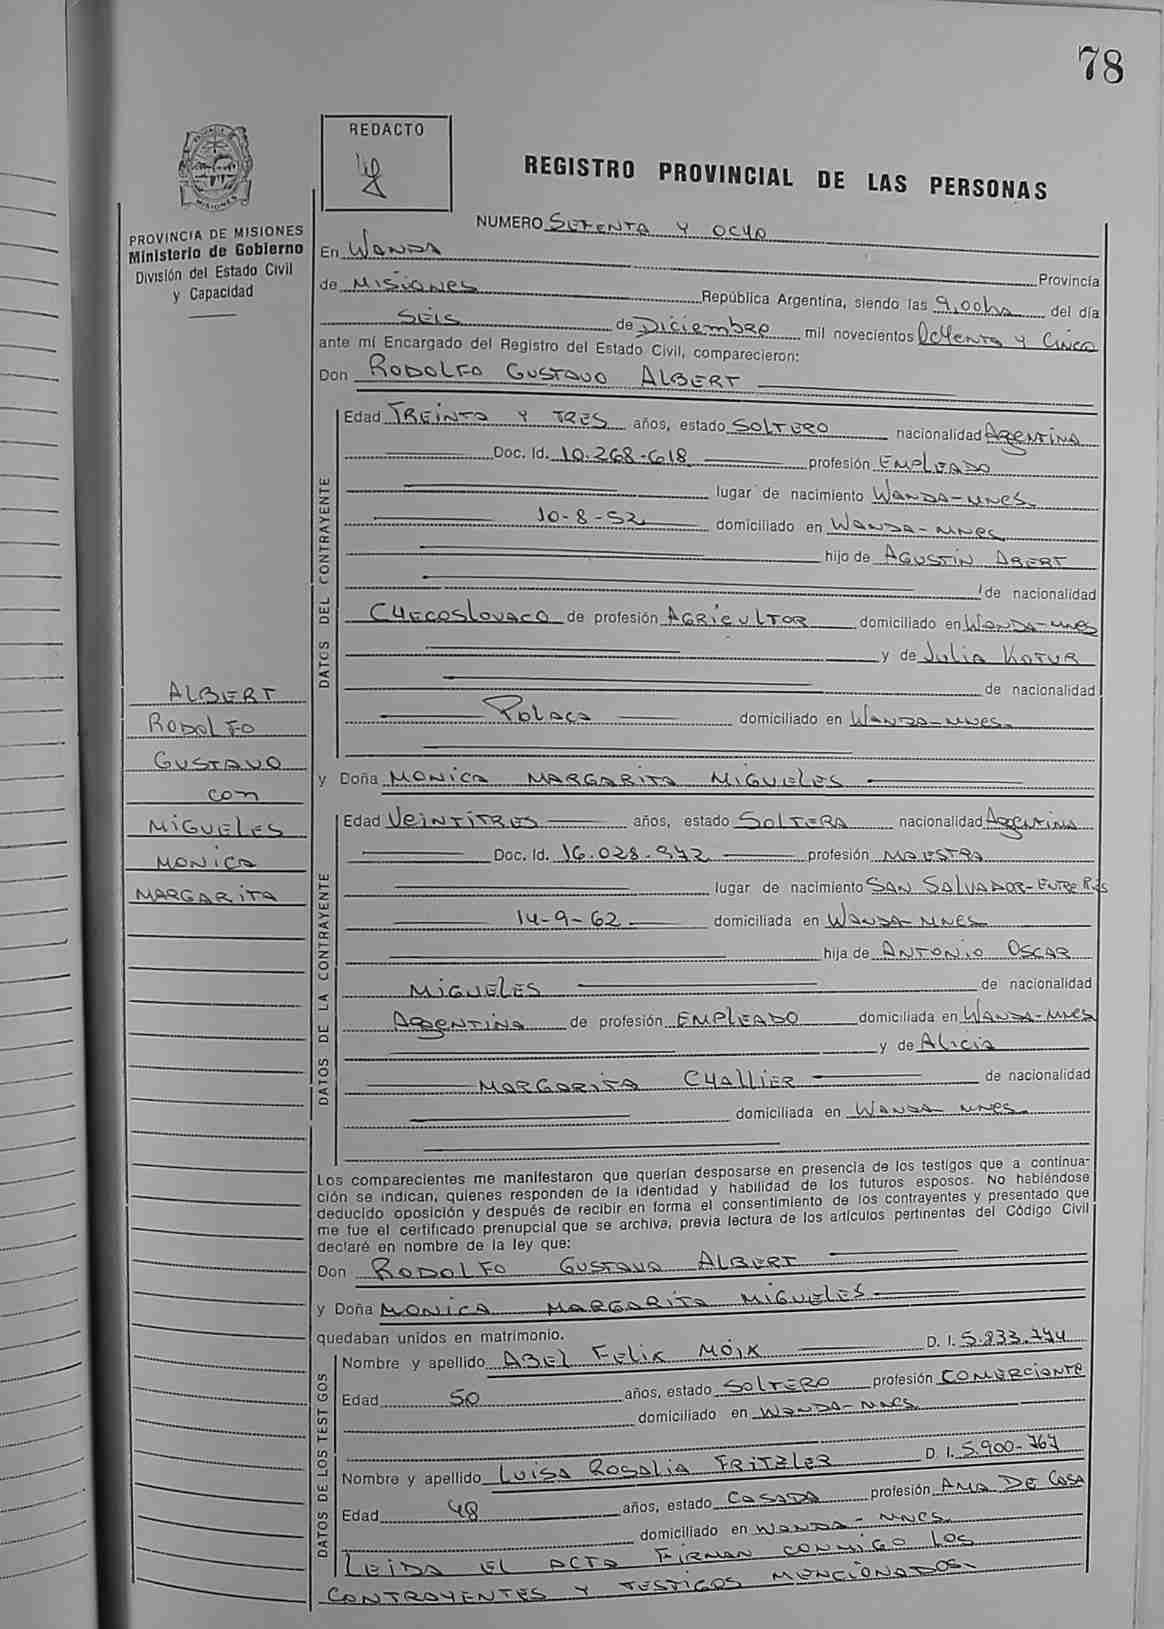 78
REDACTO
REGISTRO PROVINCIAL DE LAS PERSONAS
PROVINCIA DE MISIONES
Ministerio de Gobierno
División del Estado Civil
y Capacidad
NUMERO SETENTA Y OCHO
En WANDA Provincia
de MISIONES República Argentina, siendo las 9,00hs del día
SEIS de Diciembre mil novecientos OCHENTA Y CINCO
ante mí Encargado del Registro del Estado Civil, comparecieron:
Don RODOLFO GUSTAVO ALBERT
DATOS DEL CONTRAYENTE
Edad TREINTA Y TRES años, estado SOLTERO nacionalidad ARGENTINA
Doc. Id. 10.268-618 profesión EMPLEADO
lugar de nacimiento WANDA-MNES
10-8-52 domiciliado en WANDA-MNES
hijo de AGUSTIN ABERT
de nacionalidad
CHECOSLOVACO de profesión AGRICULTOR domiciliado en WANDA-MNES
y de Julia KOTUR
de nacionalidad
POLACA domiciliado en WANDA-MNES.
ALBERT
RODOLFO
GUSTAVO
con
MIGUELES
MONICA
MARGARITA
y Doña MONICA MARGARITA MIGUELES
DATOS DE LA CONTRAYENTE
Edad VEINTITRES años, estado SOLTERA nacionalidad ARGENTINA
Doc. Id. 16.028.972 profesión MAESTRA
lugar de nacimiento SAN SALVADOR-ENTRE RIOS
14-9-62 domiciliada en WANDA-MNES
hija de ANTONIO OSCAR
MIGUELES de nacionalidad
ARGENTINA de profesión EMPLEADO domiciliada en WANDA-MNES
y de Alicia
MARGARITA CHALLIER de nacionalidad
domiciliada en WANDA MNES.
Los comparecientes me manifestaron que querían desposarse en presencia de los testigos que a continua-
ción se indican, quienes responden de la identidad y habilidad de los futuros esposos. No habiéndose
deducido oposición y después de recibir en forma el consentimiento de los contrayentes y presentado que
me fue el certificado prenupcial que se archiva, previa lectura de los artículos pertinentes del Código Civil
declaré en nombre de la ley que:
Don RODOLFO GUSTAVO ALBERT
y Doña MONICA MARGARITA MIGUELES
quedaban unidos en matrimonio.
DATOS DE LOS TESTIGOS
Nombre y apellido ABEL FELIX MOIK D. I. 5.833.744
Edad 50 años, estado SOLTERO profesión COMERCIANTE
domiciliado en WANDA-MNES
Nombre y apellido LUISA ROSALIA FRITZLER D. I. 5.900-767
Edad 48 años, estado CASADA profesión AMA DE CASA
domiciliado en WANDA-MNES
LEIDA EL ACTA FIRMAN CONMIGO LOS
CONTRAYENTES Y TESTIGOS MENCIONADOS.